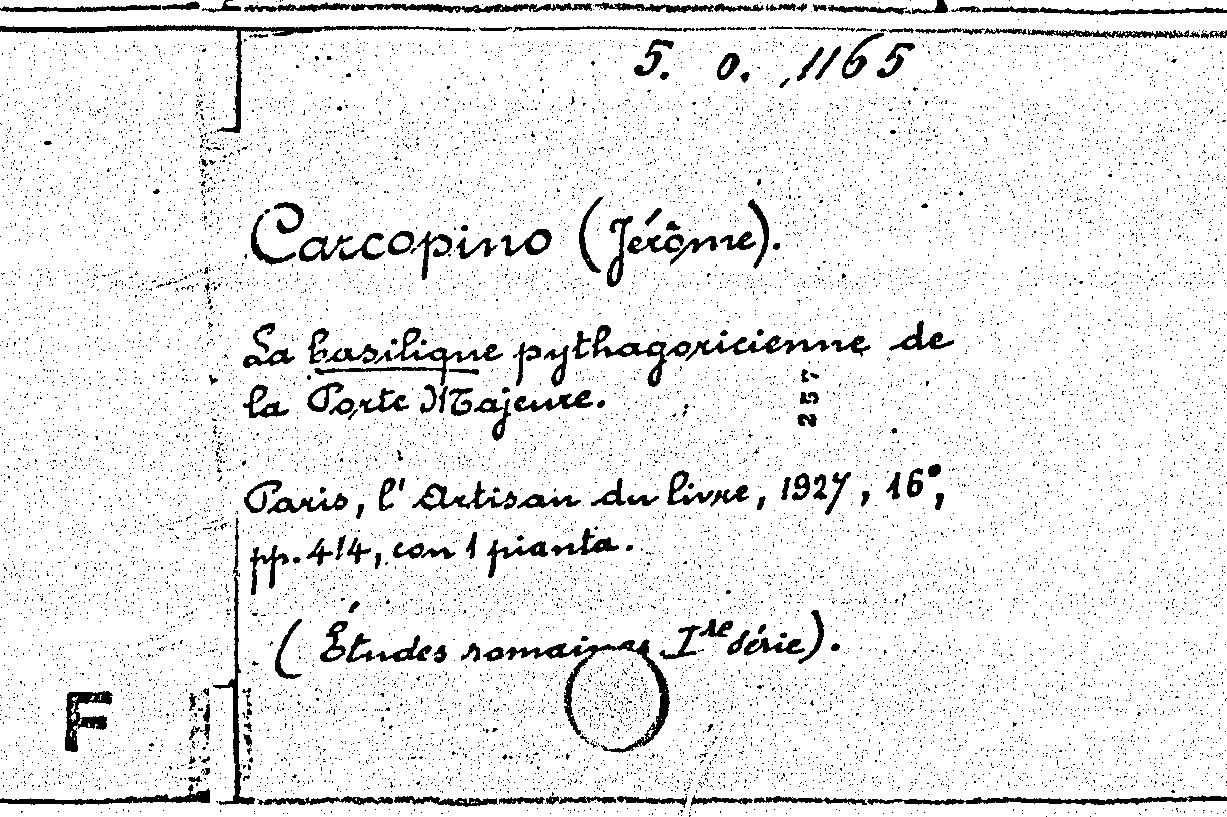 5. o. 1165
Carcopino (Jérôme).
La basilique pythagoricienne de
la Porte Majeure.
257
Paris, l'Artisan du livre, 1927, 16°,
pp. 414, con 1 pianta.
(Études romaines Ire série).
F